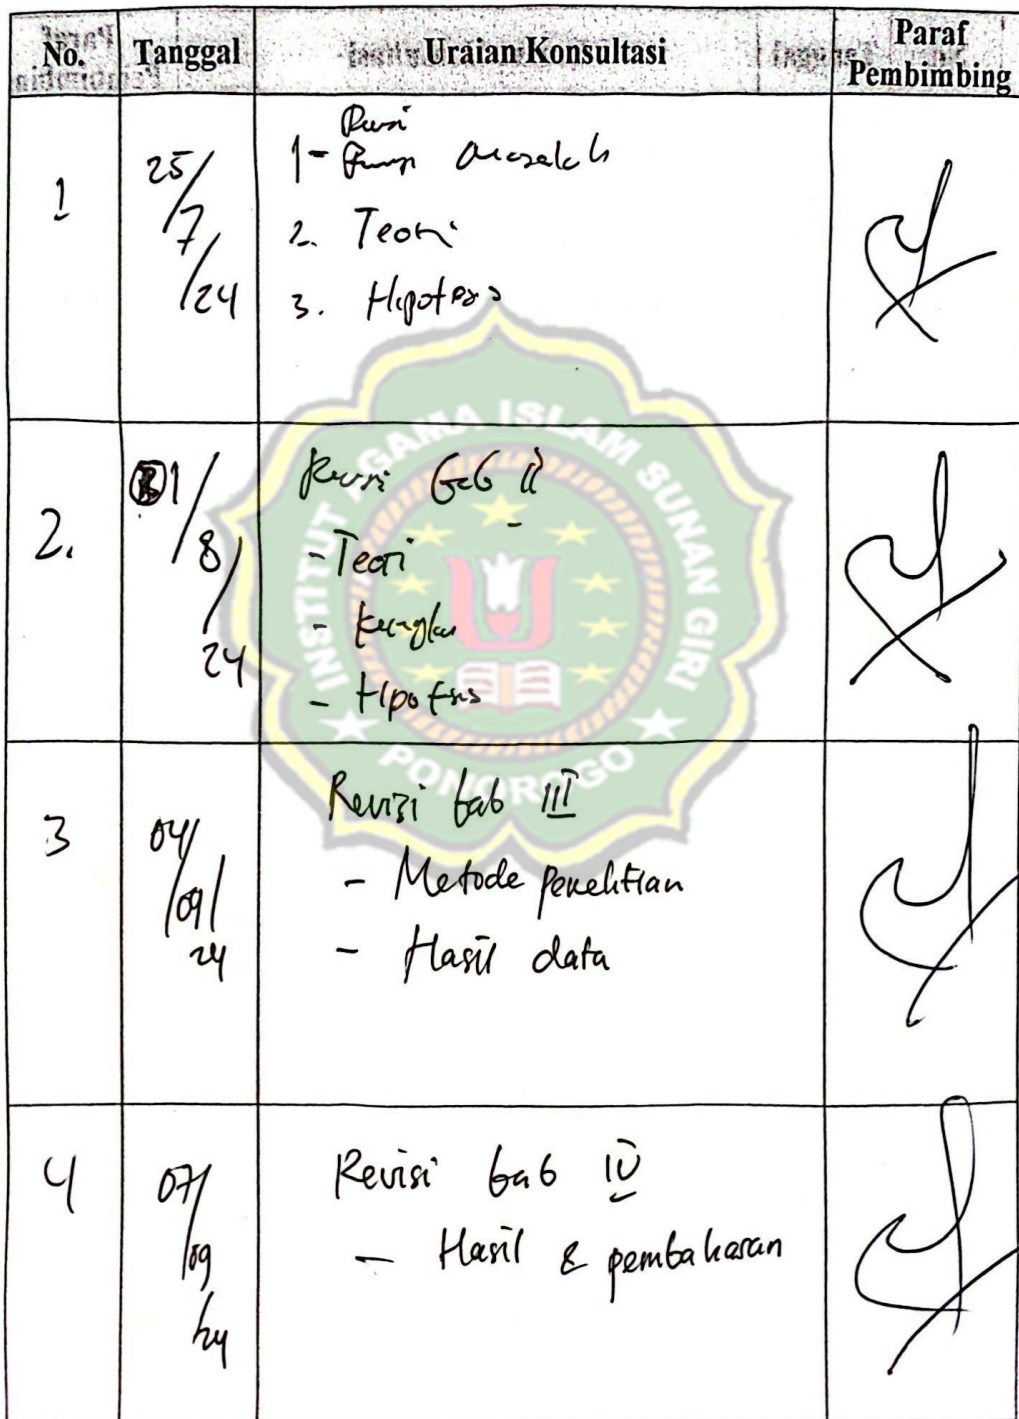 No. Tanggal Uraian Konsultasi Paraf Pembimbing
1 25/7/24
1- masalah
2. Teori
3. Hipotesis
2. 1/8/24 Revisi bab II
- Teori
- Hipotesis
3 04/09/24 Revisi bab III
- Metode penelitian
- Hasil data
4 07/09/24 Revisi bab IV
- Hasil & pembahasan
INSTITUT AGAMA ISLAM SUNAN GIRI
PONOROGO